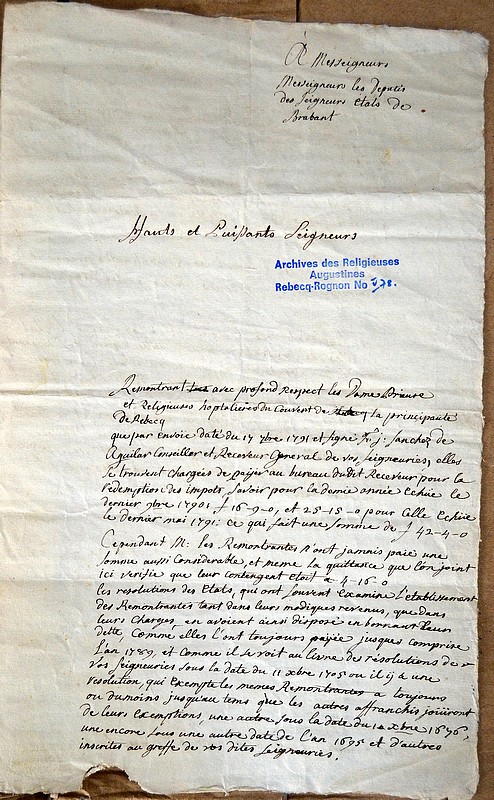 A Messeigneurs
Messeigneurs les Deputés
des Seigneurs etats de
Brabant
Hauts et Puissants Seigneurs
Archives des Religieuses
Augustines
Rebecq-Rognon No
Remontrant avec profond respect les Dame Prieure
et Religieuses hopitalieres du Couvent de la principauté
de Rebecq
que par envoie daté du 17 xbre 1791 et signé Fr. J. Sanchez de
Aguilar Conseiller et Receveur General de vos Seigneuries, elles
se trouvent chargées de paijer au bureau dudit Receveur pour la
redemption des impots, savoir pour la demie année Echue le
dernier 9bre 1790, f 16-9-0, et 25-15-0 pour celle Echue
le dernier mai 1791: ce qui fait une somme de f 42-4-0
Cependant M: les Remontrantes n'ont jamais paié une
somme aussi Considerable, et meme la quittance que l'on joint
ici verifie que leur contengent etoit a 4-16-0
les resolutions des Etats, qui ont souvent examiné l'etablissement
des Remontrantes tant dans leurs modiques revenus, que dans
leurs charges, en avoient ainsi disposé en bornant leur
dette, Comme elles l'ont toujours paijée jusques comprise
l'an 1789, et comme il se voit au livre des resolutions de
vos Seigneuries sous la date du 11 xbre 1705 ou il ij a une
resolution, qui exempte les memes Remontrantes a toujours
ou dumoins jusqu'au tems que les autres affranchis jouiront
de leurs exemptions, une autre sous la date du xbre 1696,
une encore sous une autre date de l'an 1695 et d'autres
inscrites au greffe de vos dites Seigneuries.